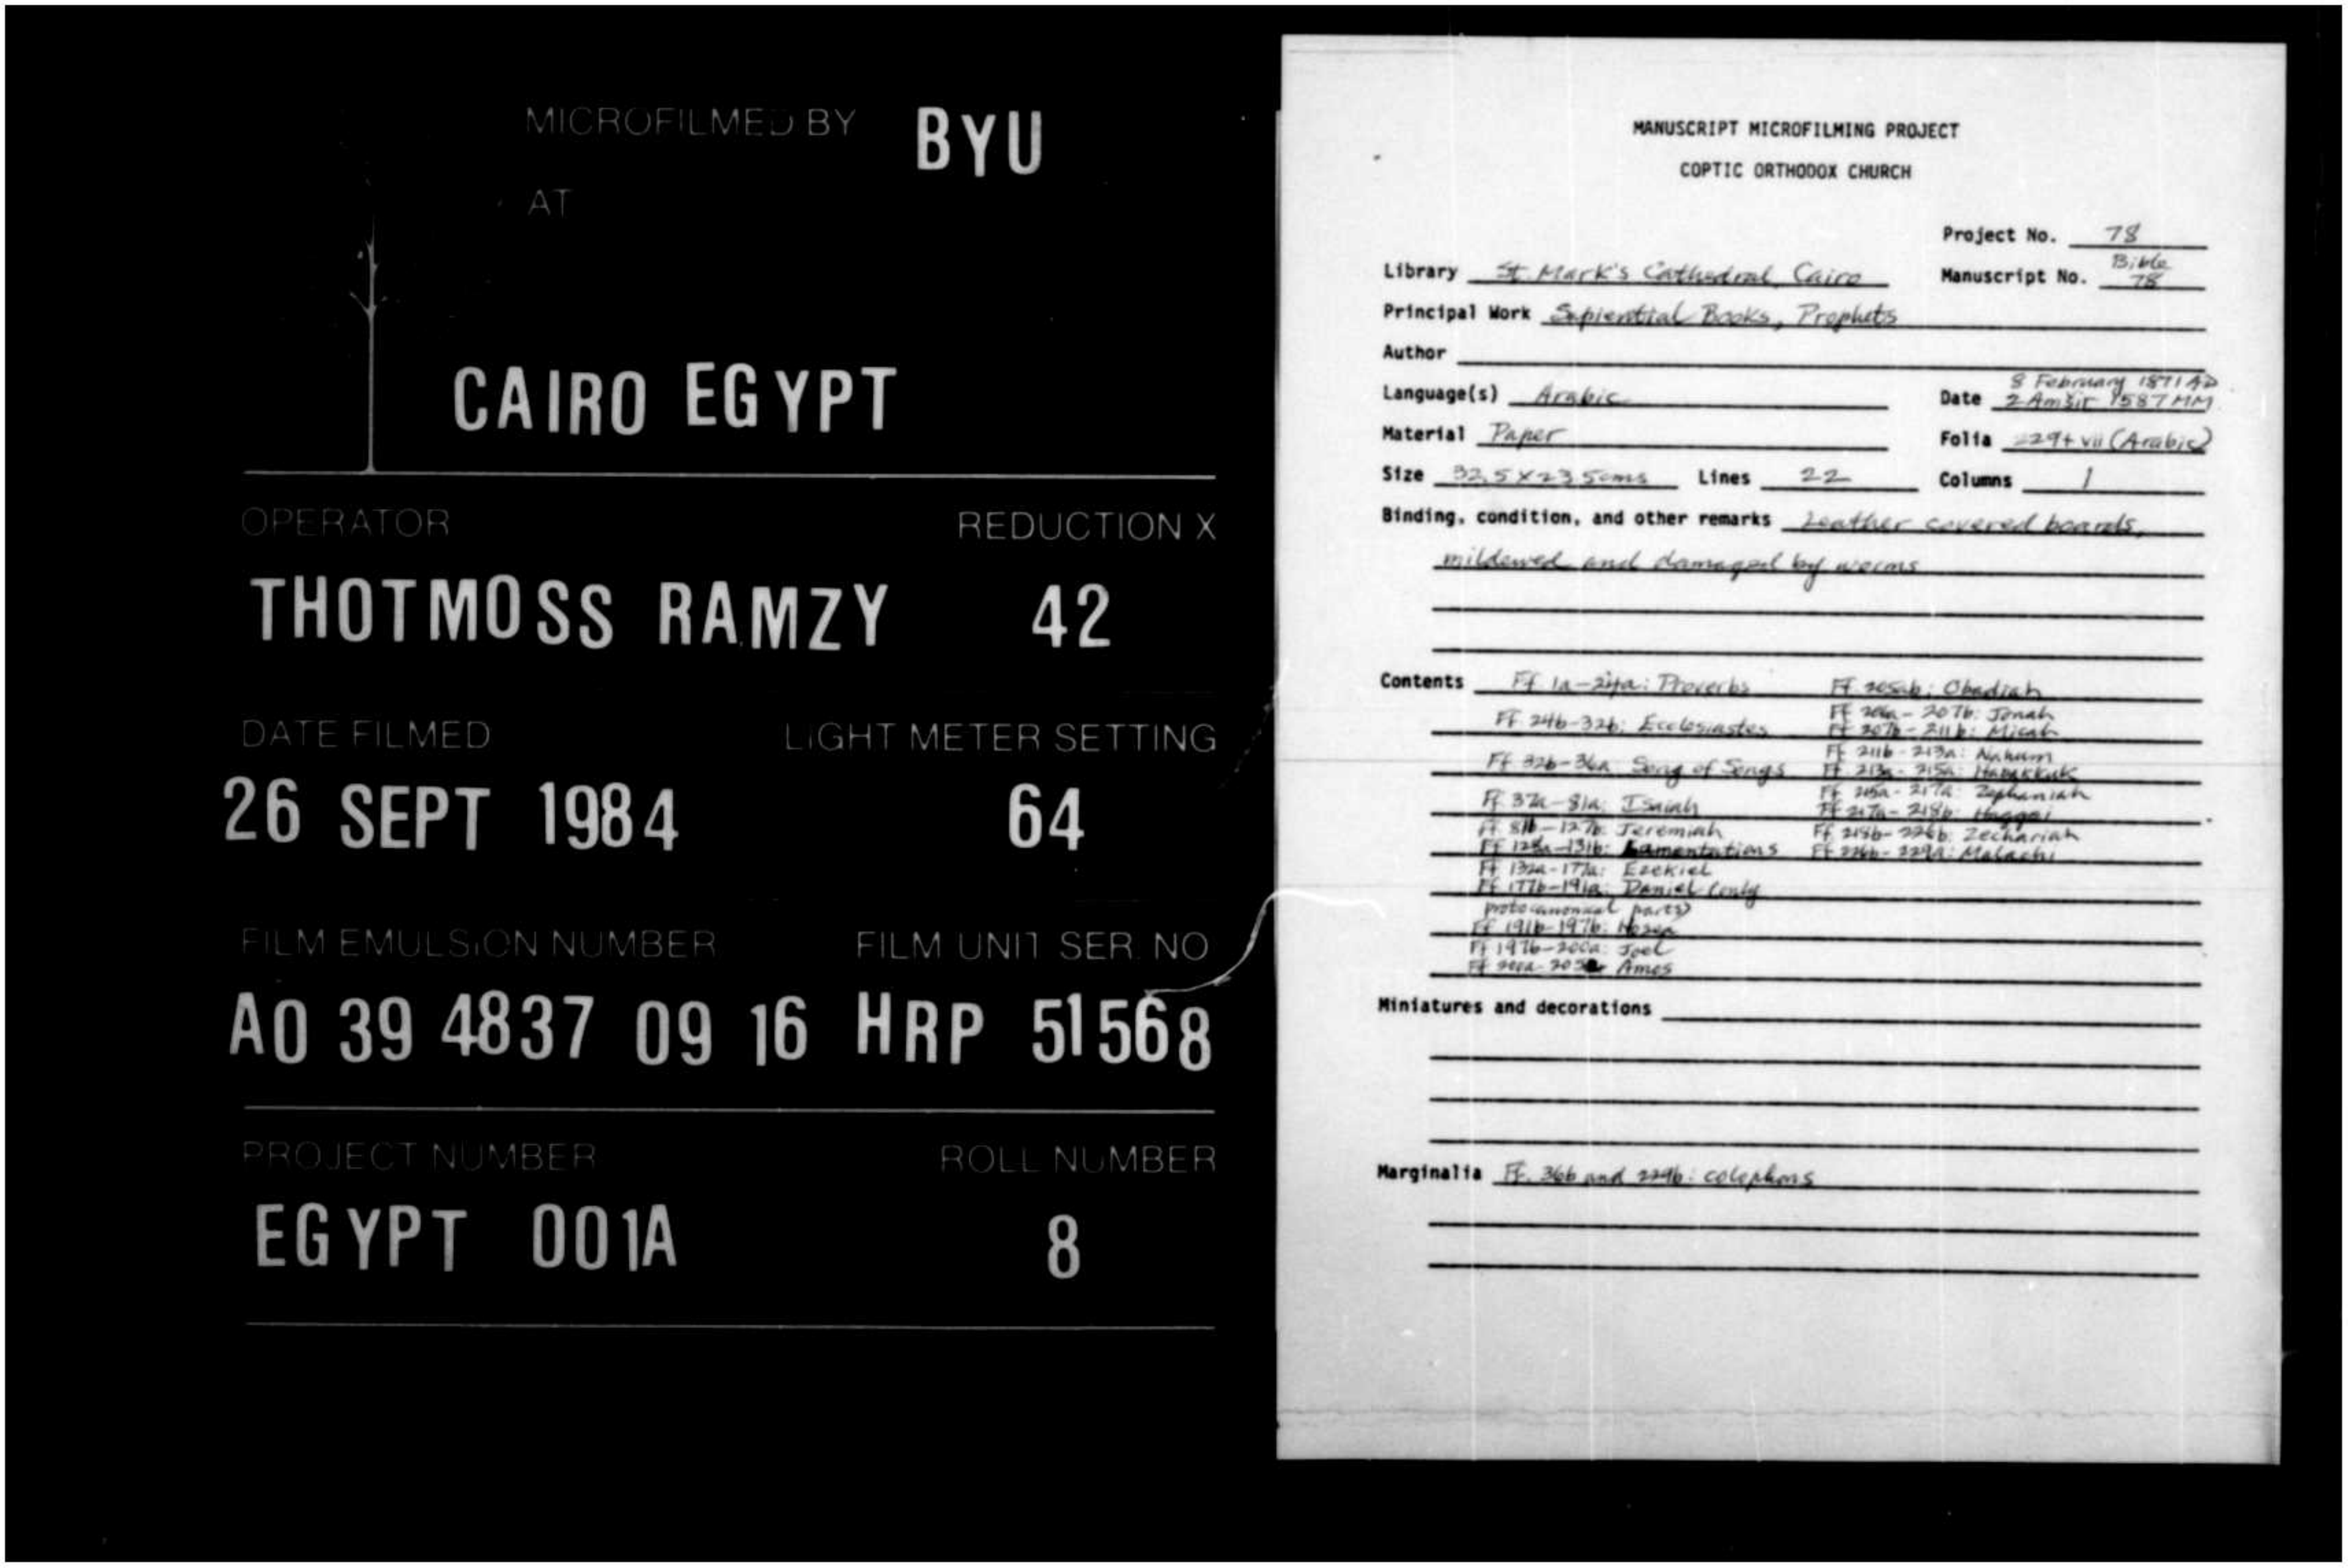 MICROFILMED BY BYU
AT
CAIRO EGYPT
OPERATOR REDUCTION X
THOTMOSS RAMZY 42
DATE FILMED LIGHT METER SETTING
26 SEPT 1984 64
FILM EMULSION NUMBER FILM UNIT SER. NO
A0 39 4837 09 16 HRP 51568
PROJECT NUMBER ROLL NUMBER
EGYPT 001A 8
MANUSCRIPT MICROFILMING PROJECT
COPTIC ORTHODOX CHURCH
Project No. 78
Library St. Mark's Cathedral, Cairo
Manuscript No. Bible 78
Principal Work Sapiential Books, Prophets
Author
Language(s) Arabic
Date 8 February 1871 AD
2 Amšir 1587 MM
Material Paper
Folia 229 + vii (Arabic)
Size 32.5 x 23.5 cms Lines 22 Columns 1
Binding, condition, and other remarks Leather covered boards,
mildewed and damaged by worms
Contents Ff. 1a-24a: Proverbs
Ff. 24b-32b: Ecclesiastes
Ff. 32b-36a: Song of Songs
Ff. 37a-81a: Isaiah
Ff. 81b-127b: Jeremiah
Ff. 128a-131b: Lamentations
Ff. 132a-177a: Ezekiel
Ff. 177b-191a: Daniel (only
protocanonical parts)
Ff. 191b-197b: Hosea
Ff. 197b-200a: Joel
Ff. 200a-205a Amos
Ff. 205ab: Obadiah
Ff. 206a-207b: Jonah
Ff. 207b-211b: Micah
Ff. 211b-213a: Nahum
Ff. 213a-215a: Habakkuk
Ff. 215a-217a: Zephaniah
Ff. 217a-218b: Haggai
Ff. 218b-226b: Zechariah
Ff. 226b-229a: Malachi
Miniatures and decorations
Marginalia Ff. 36b and 229b: colophons